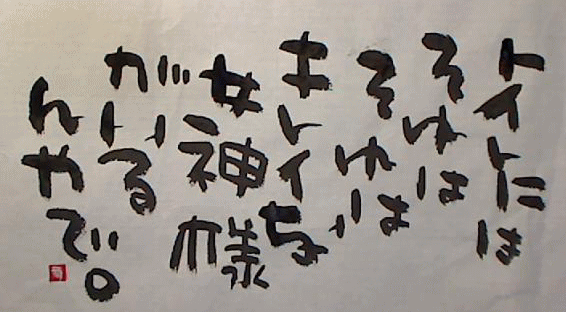 トイレには
それは
それは
キレイな
女神様
がいる
んやで。